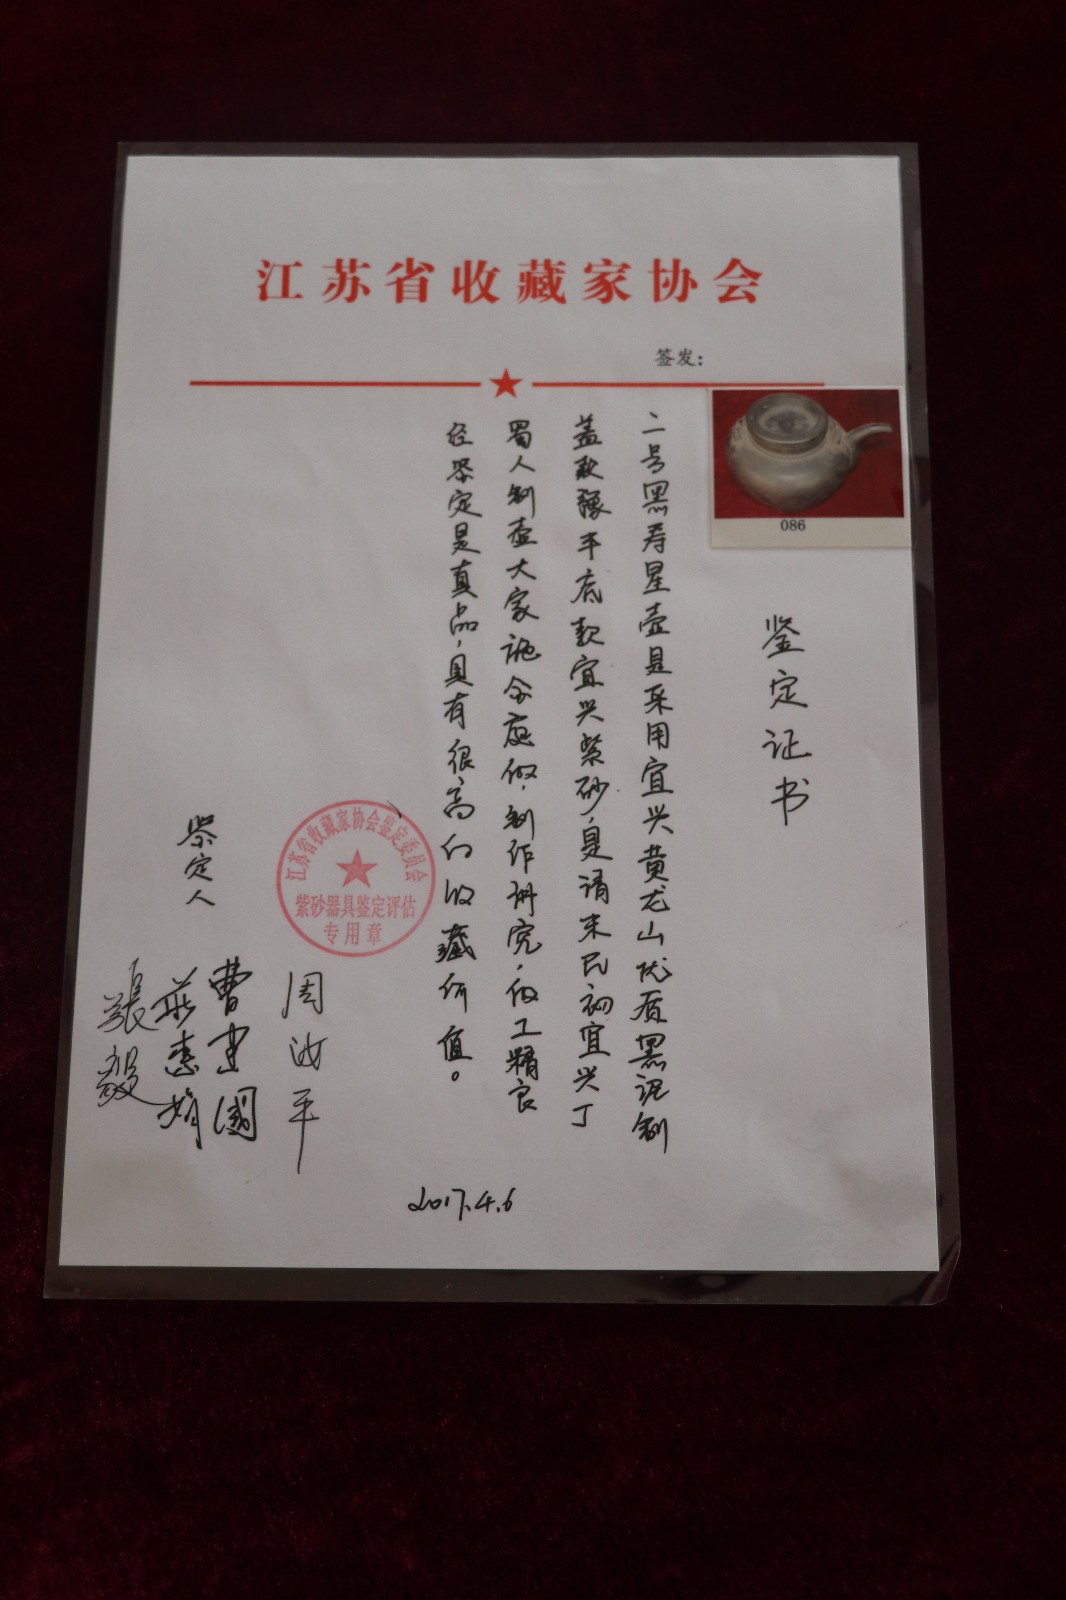 江苏省收藏家协会
签发：
086
鉴定证书
二号黑寿星壶是采用宜兴黄龙山优质黑泥制
盖款豫丰底款宜兴紫砂，是清末民初宜兴丁
蜀人制壶大家施今庭做，制作讲究，做工精良
经鉴定是真品，具有很高的收藏价值。
江苏省收藏家协会鉴定委员会
紫砂器具鉴定评估
专用章
鉴定人
周汝平
曹建国
張毅
2017.4.6